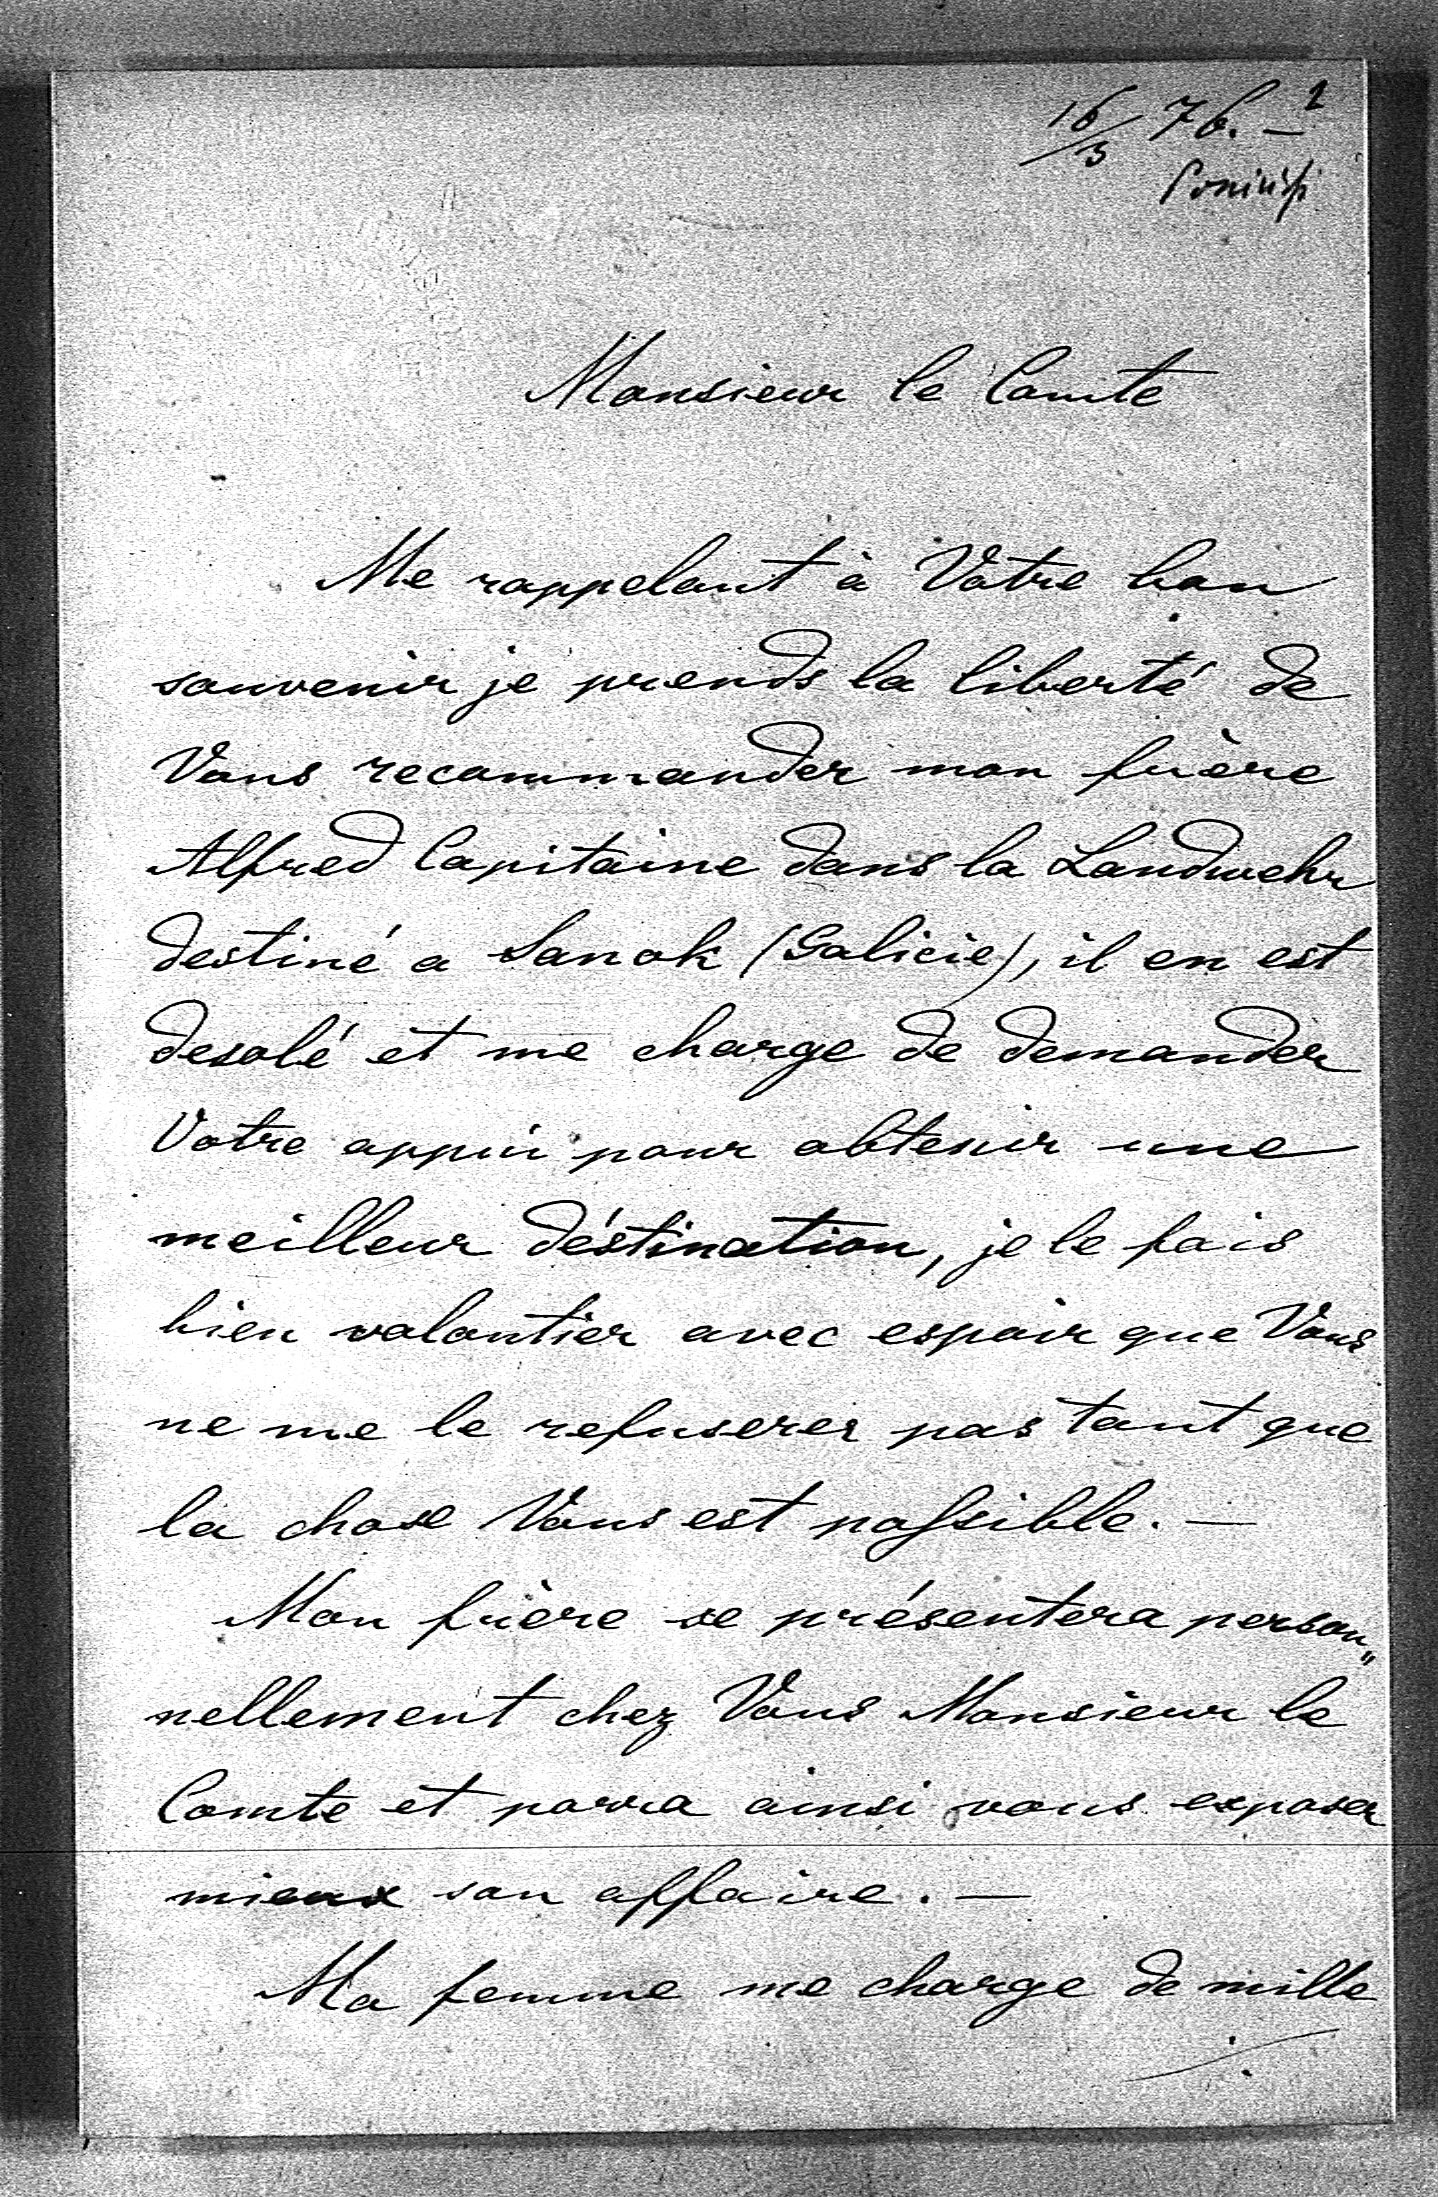 16/3 76. — 2
Poniński
Monsieur le Comte
Me rappelant à Votre bon
souvenir je prends la liberté de
Vous recommander mon frère
Alfred Capitaine dans la Landwehr
destiné a Sanok (Galicie), il en est
desolé et me charge de demander
Votre appui pour obtenir une
meilleur déstination, je le fais
bien volontier avec espoir que Vous
ne me le refuserer pas tant que
la chose Vous est possible. —
Mon frère se présentera person„
nellement chez Vous Monsieur le
Comte et porra ainsi vous exposer
mieux son affaire. —
Ma femme me charge de mille